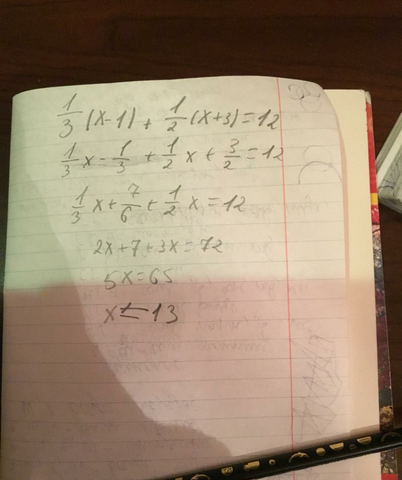 1/3 (x-1) + 1/2 (x+3) = 12
1/3 x - 1/3 + 1/2 x + 3/2 = 12
1/3 x + 7/6 + 1/2 x = 12
2x + 7 + 3x = 72
5x = 65
x = 13